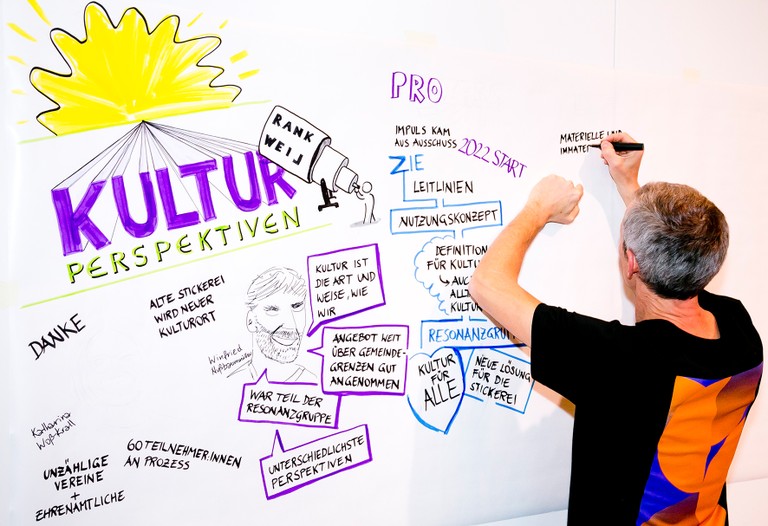 RANK
WEIL
KULTUR
PERSPEKTIVEN
PRO
IMPULS KAM
AUS AUSSCHUSS
2022 START
ZIE
LEITLINIEN
NUTZUNGSKONZEPT
DEFINITION
FÜR KULTU
AUC
ALLT
KULTUR
RESONANZGRUP
KULTUR
FÜR
ALLE
NEUE LÖSUNG
FÜR DIE
STICKEREI
MATERIELLE UND
IMMATER
DANKE
ALTE STICKEREI
WIRD NEUER
KULTURORT
Winfried
KULTUR IST
DIE ART UND
WEISE, WIE
WIR
ANGEBOT WEIT
ÜBER GEMEINDE-
GRENZEN GUT
ANGENOMMEN
WAR TEIL DER
RESONANZGRUPPE
UNTERSCHIEDLICHSTE
PERSPEKTIVEN
Katharina
Woß-Krall
UNZÄHLIGE
VEREINE
+
EHRENAMTLICHE
60 TEILNEHMER:INNEN
AN PROZESS